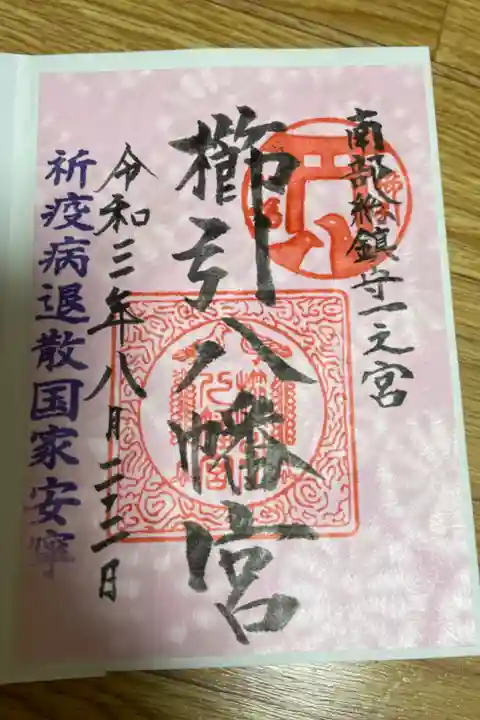 南部総鎮守一之宮
櫛引八幡宮
令和三年八月二十二日
祈疫病退散国家安寧